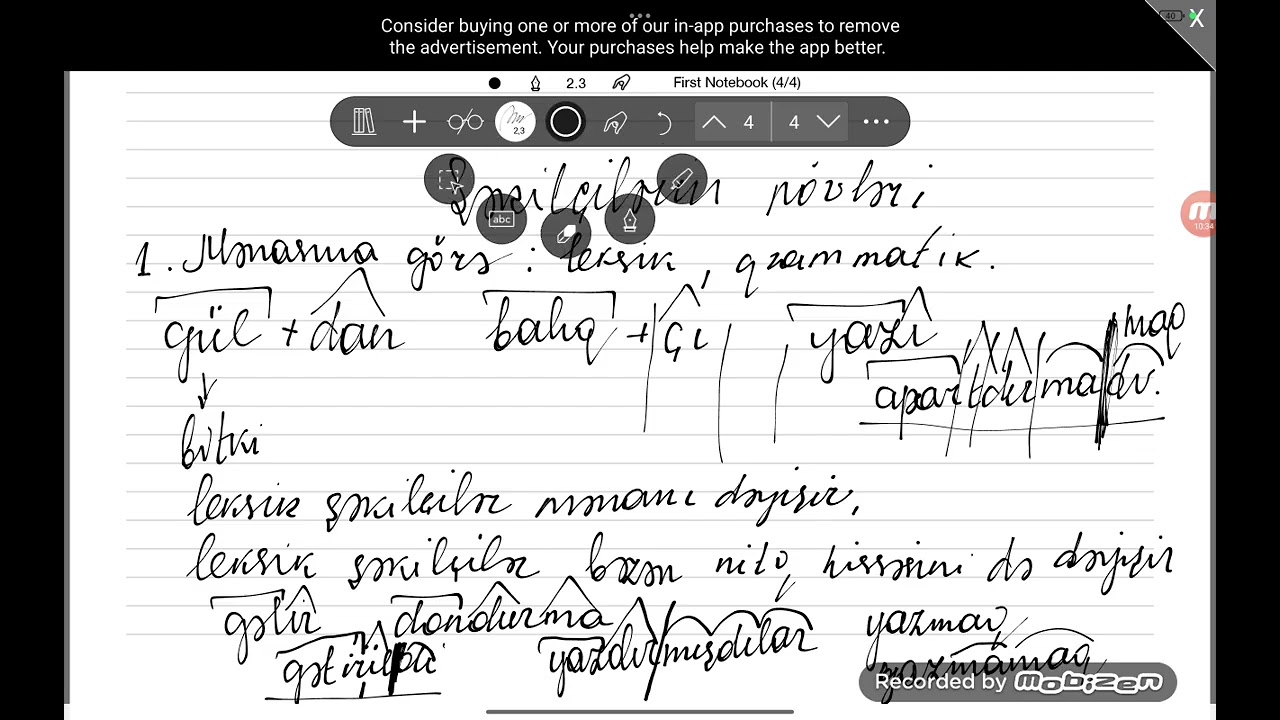 Consider buying one or more of our in-app purchases to remove
the advertisement. Your purchases help make the app better.
40 X
2.3 First Notebook (4/4)
2,3 4 4
abc
Şəkilçilərin növləri
10:34
1. Mənasına görə: leksik, qrammatik.
gül + dan balıq + çı yazı
maq
apartdırmadı.
bitki
leksik şəkilçilər mənanı dəyişir,
leksik şəkilçilər bəzən nitq hissəsini də dəyişir
gətir dondurma yazdırmışdılar yazmaq
gətirildi yazmamaq
Recorded by mobizen